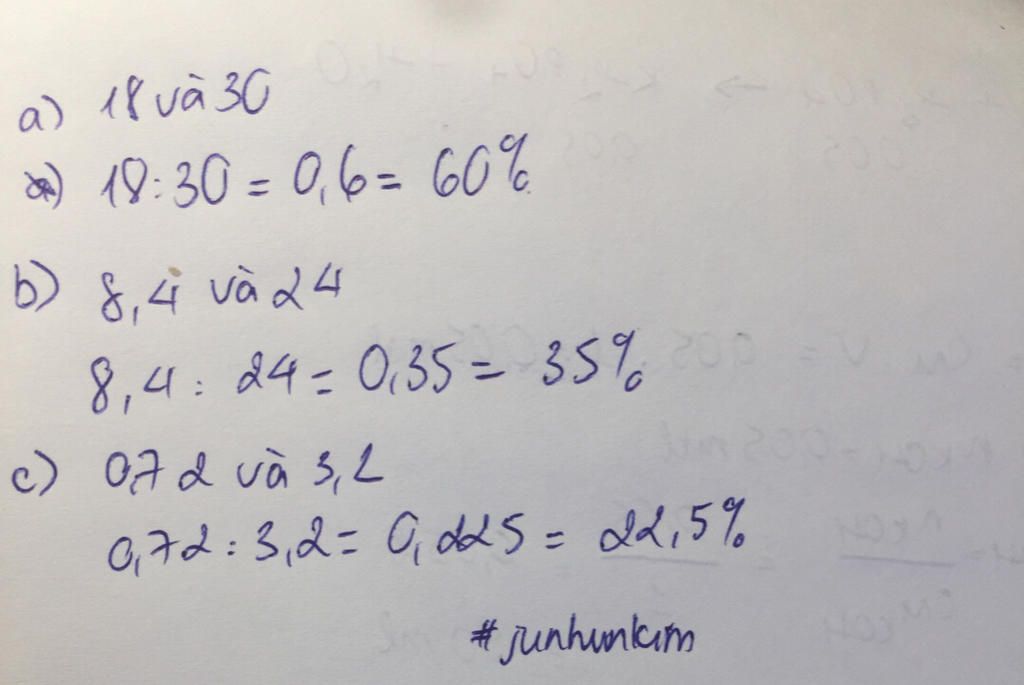 a) 18 và 30
a) 18 : 30 = 0,6 = 60%
b) 8,4 và 24
8,4 : 24 = 0,35 = 35%
c) 0,72 và 3,2
0,72 : 3,2 = 0,225 = 22,5%
#junhunkim